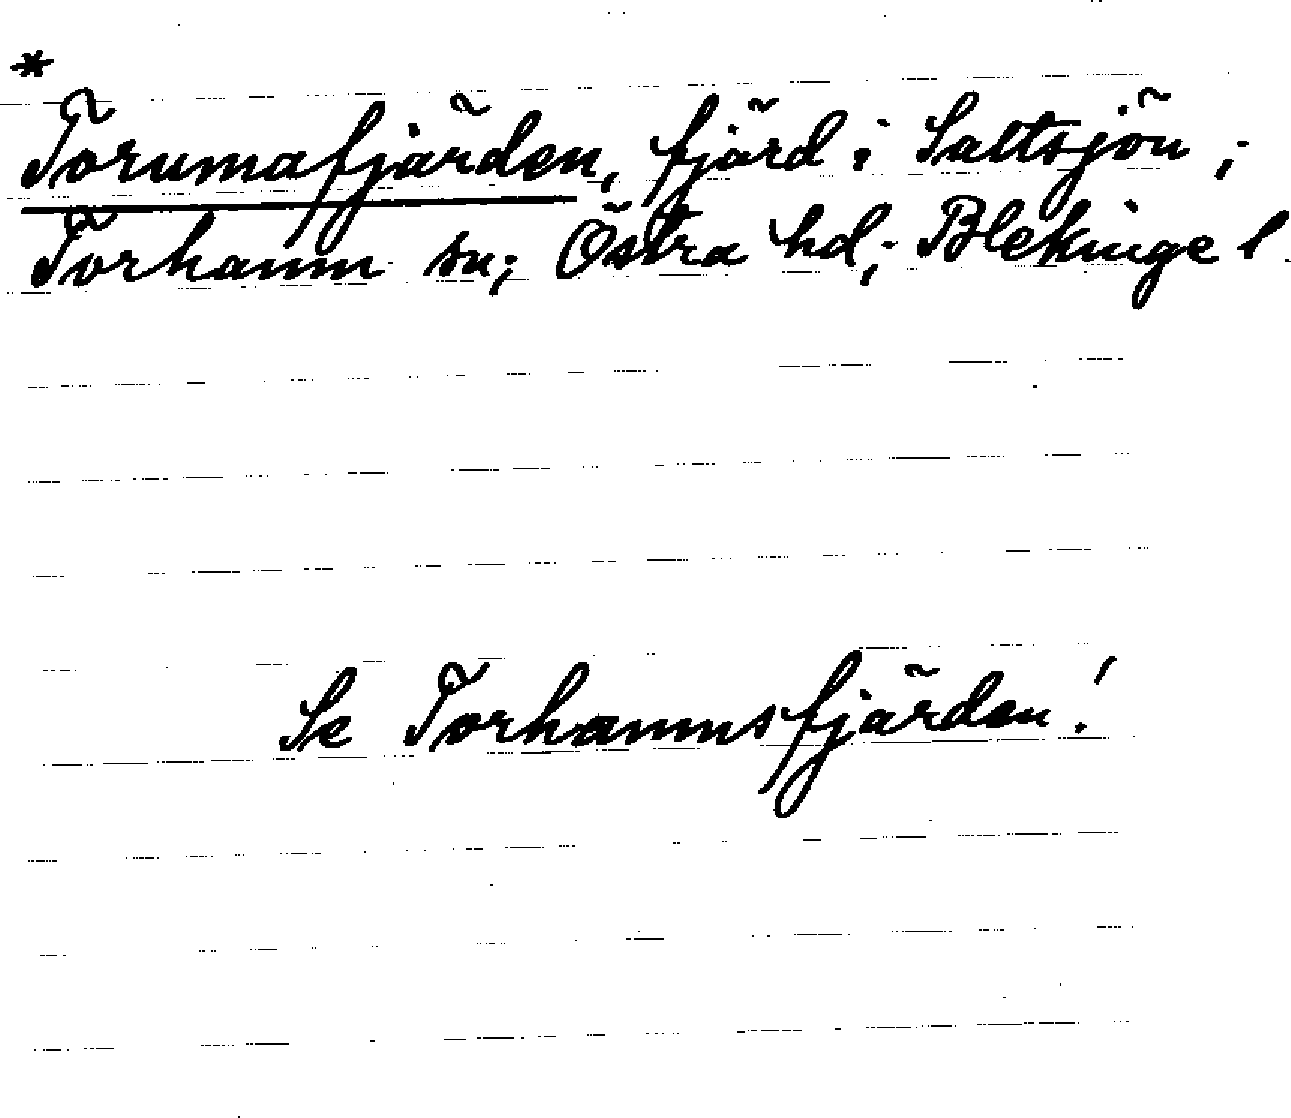 *
Torumafjärden, fjärd i Saltsjön;
Torhamn sn; Östra hd; Blekinge l
Se Torhamnsfjärden!